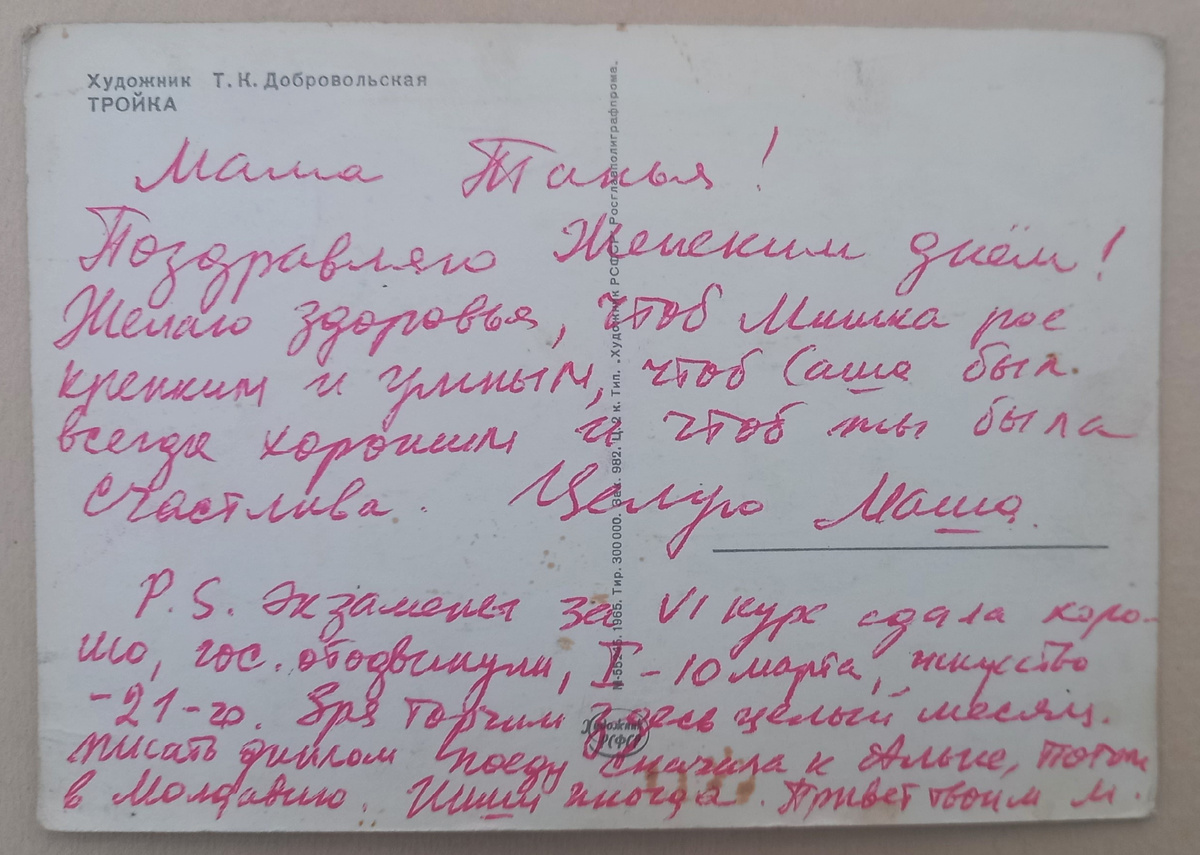 Художник Т. К. Добровольская
ТРОЙКА
Мама Танья!
Поздравляю Женским днём!
Желаю здоровья, чтоб Мишка рос
крепким и умным, чтоб Саша был
всегда хорошим и чтоб ты была
счастлива. Целую Маша
P.S. Экзамены за VI курс сдала хоро-
шо, гос. отодвинули, I - 10 марта,
-21-го. Зря торчим здесь целый месяц.
писать диплом поеду сначала к Альке, потом
в Молдавию. Пиши иногда. Привет твоим М.
М-55245. 1965. Тир. 300 000. Зак. 982. Ц. 2 к. Тип. „Художник РСФСР" Росглавполиграфпрома.
Художник
РСФСР